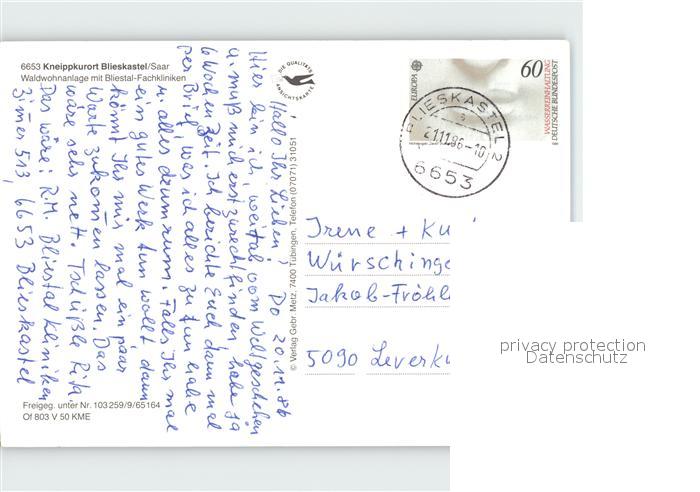 6653 Kneippkurort Blieskastel/Saar
Waldwohnanlage mit Bliestal-Fachkliniken
DIE QUALITÄTS
ANSICHTSKARTE
Hallo Ihr Lieben! Do 20.11.86
Hier bin ich, weitab vom Weltgeschehen
u. muß mich erst zurechtfinden, habe ja
6 Wochen Zeit. Ich berichte Euch dann mal
per Brief, was ich alles zu tun habe
u. alles drumrum. Falls Ihr mal
ein gutes Werk tun wollt dann
könnt Ihr mir mal ein paar
Worte zukommen lassen. Das
wäre sehr nett. Tschüßle Rita.
Das wäre: R.M. Bliestal Kliniken
Zimmer 513, 6653 Blieskastel
Freigeg. unter Nr. 103 259/9/65164
Of 803 V 50 KME
© Verlag Gebr. Metz, 7400 Tübingen, Telefon (07071) 31051
EUROPA
60
WASSERREINHALTUNG
DEUTSCHE BUNDESPOST
BLIESKASTEL 2
21.11.86-10
6653
Irene + Ku
Würschinge
Jakob-Fröhl
5090 Leverku
privacy protection
Datenschutz